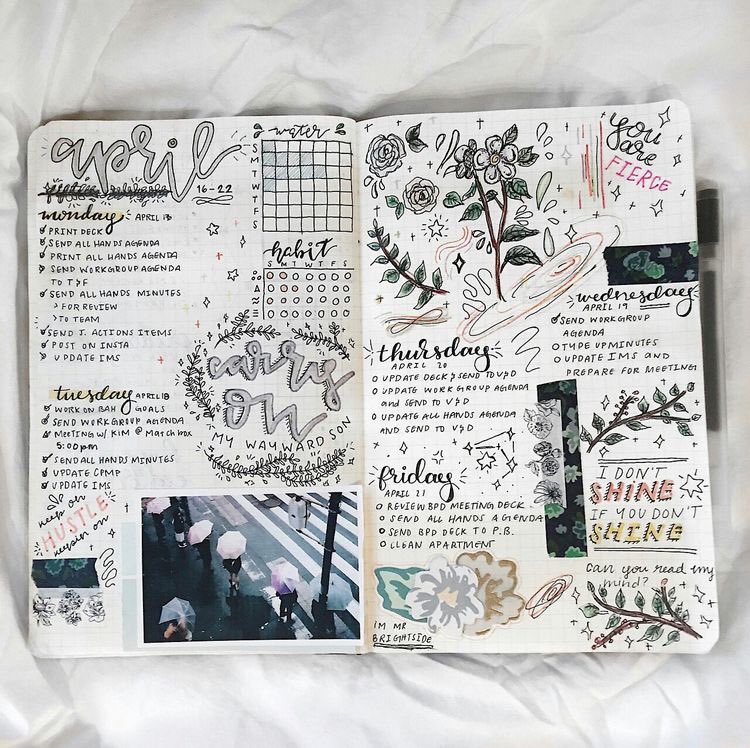 april
16-22
monday APRIL 18
PRINT DECK
SEND ALL HANDS AGENDA
PRINT ALL HANDS AGENDA
SEND WORKGROUP AGENDA
TO T&F
SEND ALL HANDS MINUTES
> FOR REVIEW
> TO TEAM
SEND J. ACTIONS ITEMS
POST ON INSTA
UPDATE IMS
tuesday APRIL 18
WORK ON BAH GOALS
SEND WORKGROUP AGENDA
MEETING W/ KIM @ Matchbox
5:00pm
SEND ALL HANDS MINUTES
UPDATE CPMP
UPDATE IMS
keep on
HUSTLE
keepin on
water
S
M
T
W
T
F
S
habit
S M T W T F S
carry
on
MY WAYWARD SON
you
are
FIERCE
wednesday
APRIL 19
SEND WORKGROUP
AGENDA
TYPE UP MINUTES
UPDATE IMS AND
PREPARE FOR MEETING
thursday
APRIL 20
UPDATE DECK & SEND TO V&D
UPDATE WORKGROUP AGENDA
AND SEND TO V&D
UPDATE ALL HANDS AGENDA
AND SEND TO V&D
friday
APRIL 21
REVIEW BPD MEETING DECK
SEND ALL HANDS AGENDA
SEND BPD DECK TO P.B.
CLEAN APARTMENT
I DON'T
SHINE
IF YOU DON'T
SHINE
can you read my
mind?
IM MR
BRIGHTSIDE